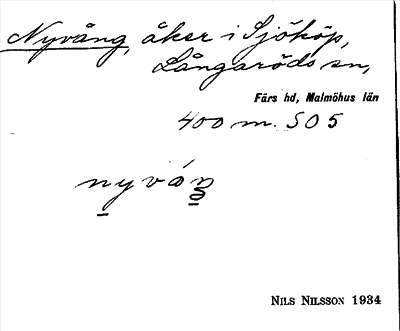 Nyvång, åker i Sjököp,
Långaröds sn,
Färs hd, Malmöhus län
400 m. S O 5
NILS NILSSON 1934